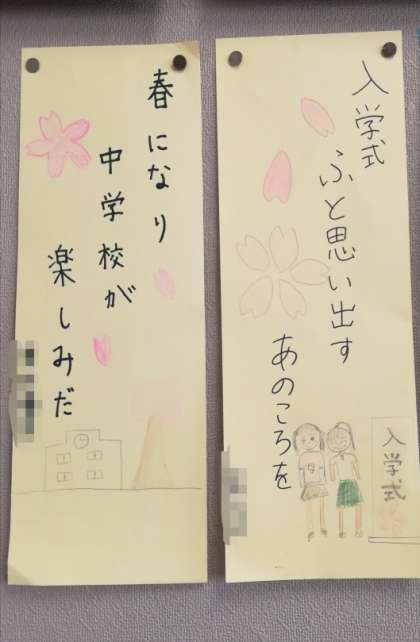 入学式
ふと思い出す
あのころを
入学式
春になり
中学校が
楽しみだ